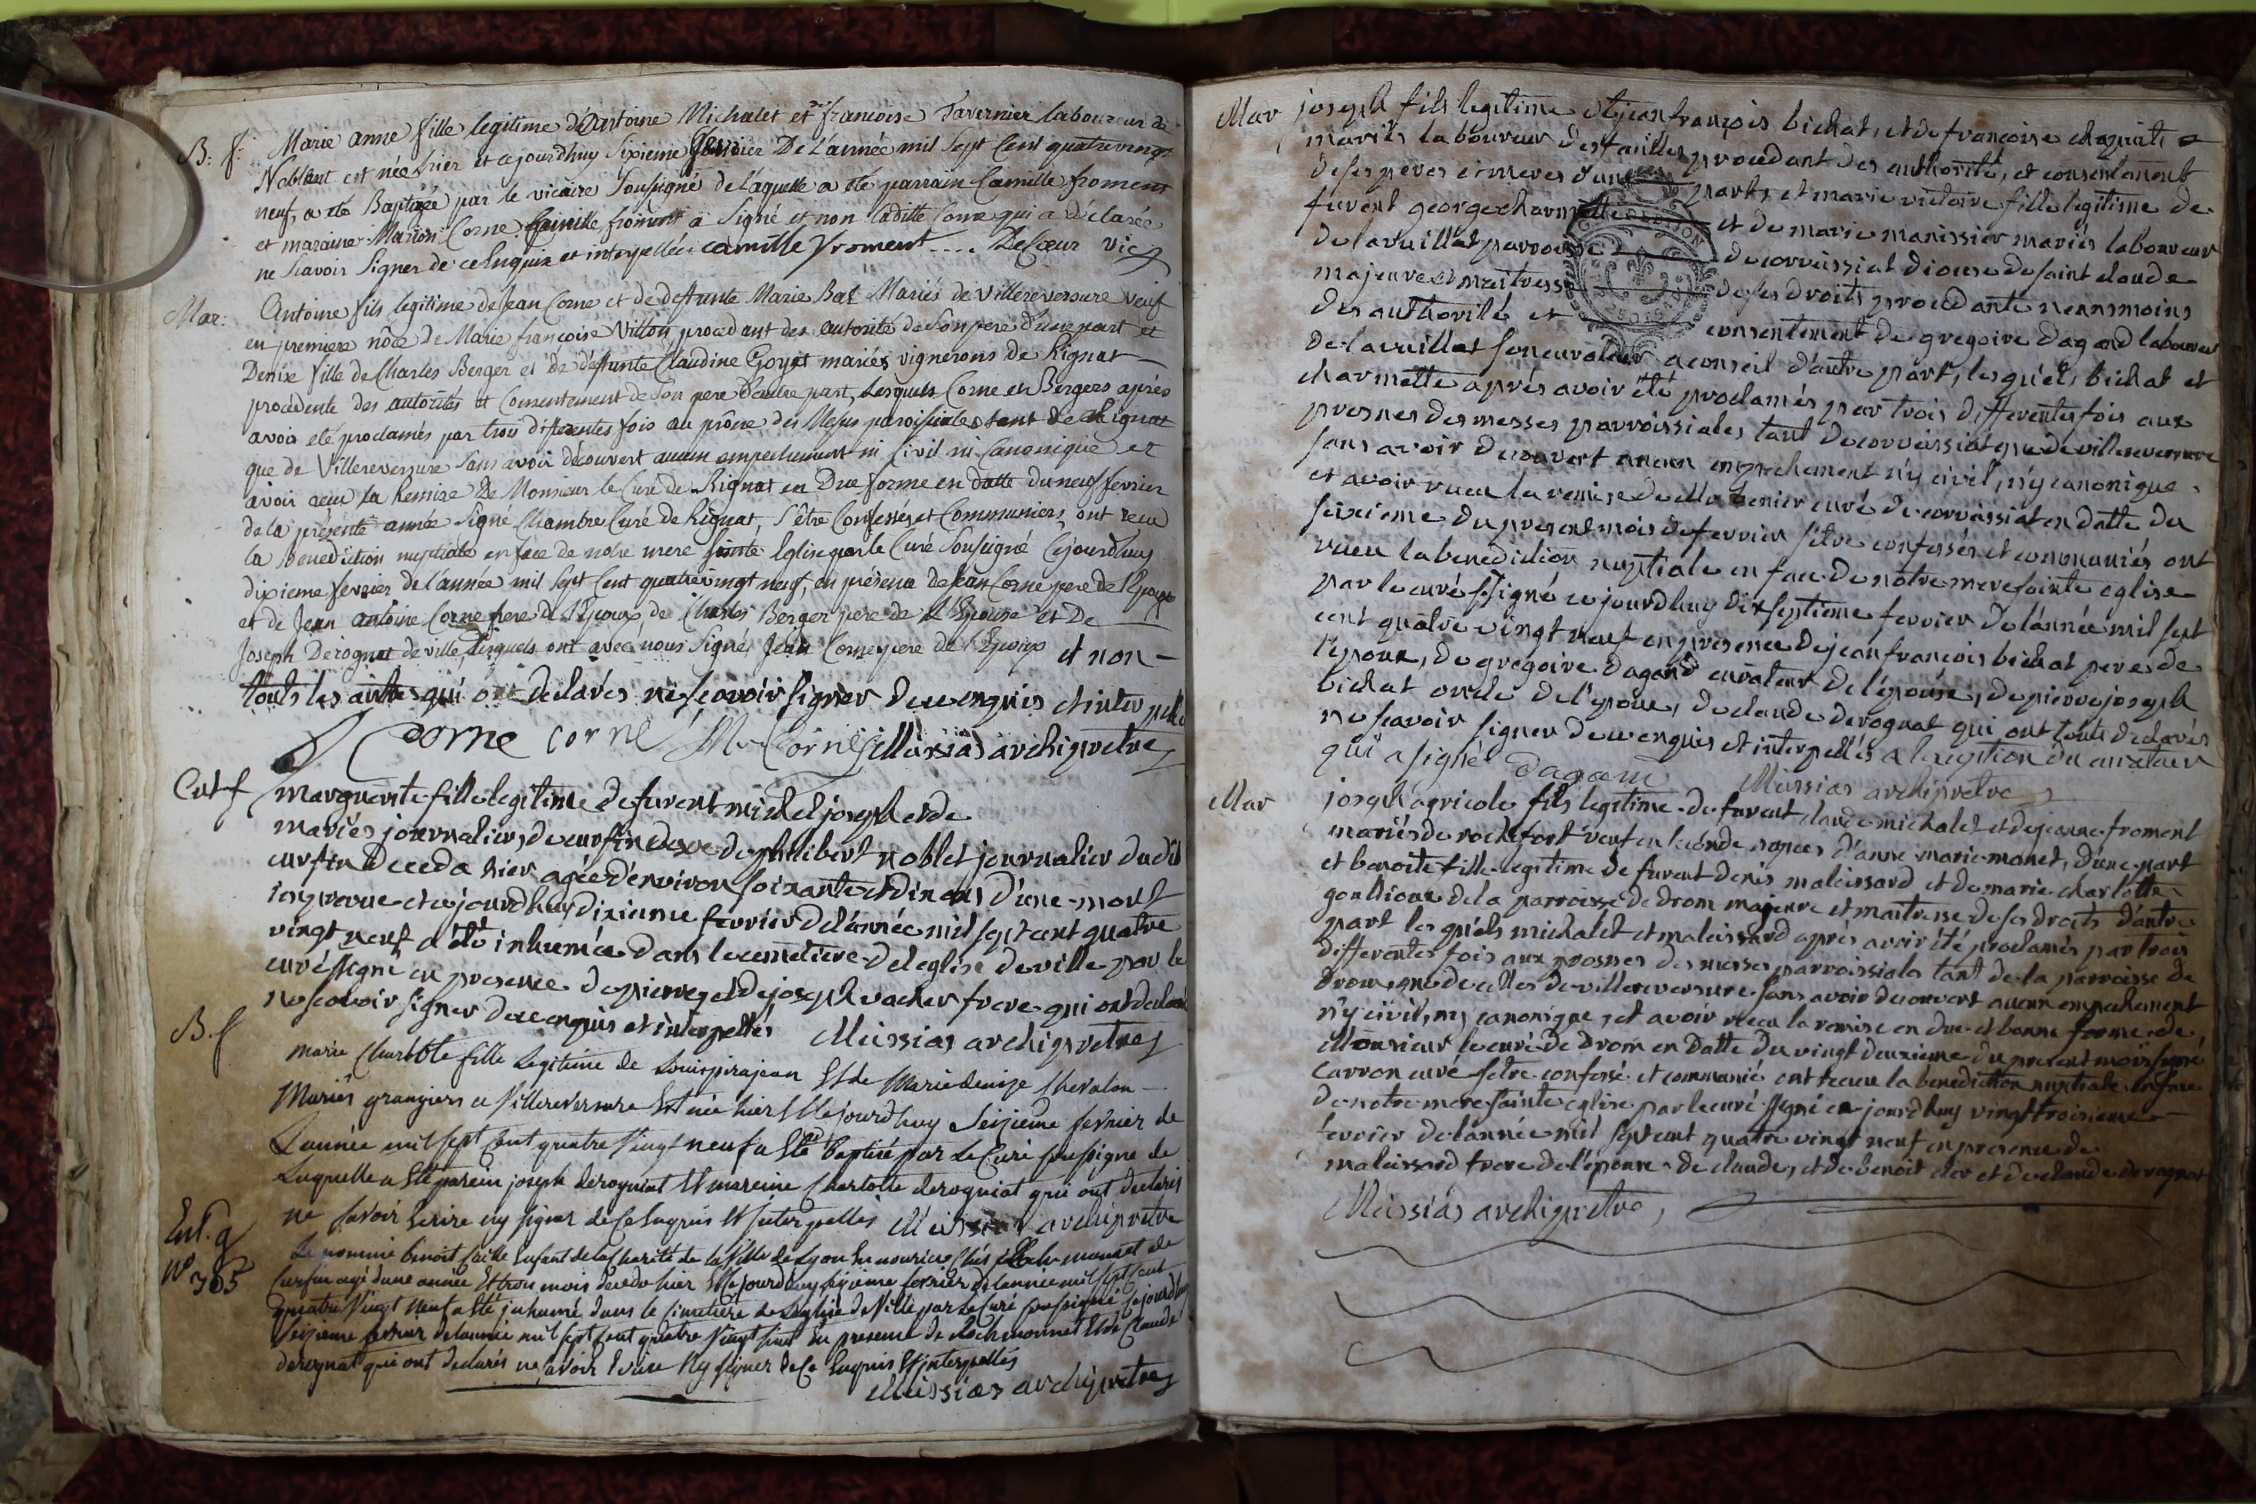 B: f:
Marie anne fille legitime d'Antoine Michalet et de francoise Tavernier laboureur de
Noblent est née hier et cejourdhuy Sixieme fevrier De L'année mil Sept Cent quatrevingt
neuf, a eté Baptisée par le vicaire Sousigné de Laquelle a eté parrain Camille froment
et maraine Marion Corne. Camille froment a Signé et non ladite Corne qui a déclarée
ne Scavoir Signer de ce Enquise et interpellée camille froment ... Delcoeur vic
Mar:
Antoine fils legitime de Jean Corne et de deffunte Marie Bal Mariés de Villereversure veuf
en premiere nôce de Marie francoise Villon, procedant des autorité de Son pere d'une part et
Denise fille de Charles Berger et de deffunte Claudine Goyat mariés vignerons de Rignat
procedente des autorités et Consentement de Son pere D'autre part, Lesquels Corne et Bergers après
avoir eté proclamés par trois differentes fois au prône des Messes paroissiales tant de Rignat
que de Villereversure Sans avoir découvert aucun empechement ni Civil ni Canonique et
avoir receu la Remise De Monsieur le Curé de Rignat en Due forme en datte du neuf fevrier
de la présente année Signé Chambre Curé de Rignat, S'être Confessés et Communiers ont receu
la Benediction nuptiale en face de notre mere Sainte Eglise par le Curé Sousigné Cejourdhuy
dixieme fevrier de l'année mil Sept Cent quatrevingt neuf, en présence de Jean Corne pere de l'Epoux
et de Jean Antoine Corne frere de l'Epoux, de Charles Berger pere de L'Epouse et De
Joseph Derognat de ville, Lesquels ont avec nous Signé, Jean Corne pere de l'Epoux et non
touts les autres qui ont declarés ne scavoir signer de ce enquis et interpellé
Corne corne M. Corne Missias archipretre
Ent f
marguerite fille legitime de furent michel joseph et de
mariés journaliers de curfin veuve de philibert noblet journalier dudit
curfin deceda hier agée d'environ soixante et dix ans d'une mort
imprevue et cejourdhuy dixieme fevrier de l'année mil sept cent quatre
vingt neuf a été inhumée dans le cemetiere de l'eglise de ville par le
curé ssigné en presence de pierre et de joseph vacher frere qui ont declaré
ne scavoir signer de ce enquis et interpellés Missias archipretre
B. f
marie Charlotte fille Legitime de Louis pirajean Et de Marie denise Chevalon
Mariés grangiers a Villereversure Est née hier Et Cejourdhuy Seizieme fevrier de
Lannée mil sept Cent quatre Vingt neuf a Eté baptisé par Le Curé soussigne de
Laquelle a Eté parein joseph derogniat Et mareine Charlotte derogniat qui ont declarés
ne savoir Ecrire ny signer de Ce Enquis Et Interpellés Missias archipretre
Ent. g
N° 365
Le nommé benoit Enfant de la Charité de la Ville de Lyon En nourice Chés Roch monnet de
Curfin agé dune année Et trois mois deceda hier Et Cejourdhuy Seizieme fevrier de lannée mil sept Cent
quatre Vingt neuf a Eté inhumé dans le Cimetiere de Leglise de Ville par Le Curé soussigné Cejourdhuy
Seizieme fevrier de lannée mil sept Cent quatre Vingt neuf En presence de Roch monnet Et de Claude
derognat qui ont declarés ne savoir Ecrire Ny signer de Ce Enquis Et interpellés
Missias archipretre
Mar
joseph fils legitime de jean françois bichat, et de françoise
mariés laboureur des failles procedant des authorité, et consentement
de ses peres et meres d'une part, et marie victoire fille legitime de
furent george charmette et de marie manissier mariés laboureur
de lavaillat parroisse de corvaissiat diocese de saint claude
majeure et maitresse de ses droits procedante neansmoins
des authorité et consentement de gregoire dagand laboureur
de lavaillat son curateur a conseil d'autre part, lesquels bichat et
charmette aprés avoir été proclamés par trois differentes fois aux
prosnes des messes parroissiales tant de corvaissiat que de villereversure
sans avoir decouvert aucun empechement n'y civil, n'y canonique
et avoir receu la remise de curé de corvaissiat en datte du
seizieme du present mois de fevrier s'etre confessés et communiés ont
receu la benediction nuptiale en face de notre mere sainte eglise
par le curé ssigné cejourdhuy dixseptieme fevrier de l'année mil sept
cent quatre vingt neuf en presence de jean françois bichat pere de
l'epoux, de gregoire dagand curateur de l'épouse, de pierre joseph
bichat oncle de l'epoux, de claude derognat qui ont touts declarés
ne scavoir signer de ce enquis et interpellés a l'exception du curateur
qui a signé dagand Missias archipretre
Mar
joseph agricole fils legitime de furent claude michalet et de jeanne froment
mariés de rochefort veuf en seconde nopces d'anne marie monet, d'une part
et benoite fille legitime de furent denis maleissard et de marie charlotte
gouldioux de la parroisse de drom majeure et maitresse de ses droits d'autre
part lesquels michalet et maleissard aprés avoir été proclamés par trois
differentes fois aux prosnes des messes parroissiales tant de la parroisse de
drom, que de celles de villereversure sans avoir decouvert aucun empechement
n'y civil, n'y canonique, et avoir receu la remise en due et bonne forme de
Monsieur le curé de drom en datte du vingt deuxieme du present mois signé
carron curé s'etre confessé et communié ont receu la benediction nuptiale en face
de notre mere sainte eglise par le curé ssigné cejourdhuy vingt troisieme
fevrier de l'année mil sept cent quatre vingt neuf en presence de
maleissard frere de l'epouse de claude, et de benoit et de claude derognat
Missias archipretre